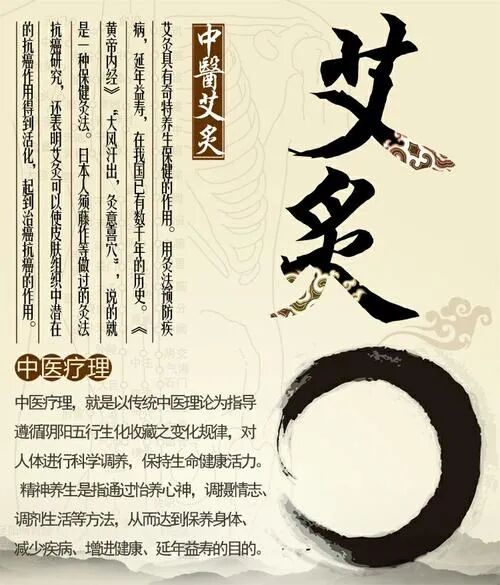 艾灸
中醫艾炙
艾灸具有奇特养生保健的作用。用灸法预防疾
病，延年益寿，在我国已有数千年的历史。《
黄帝内经》“大风汗出，灸意喜穴”，说的就
是一种保健灸法。日本人须藤作等做过的灸法
抗癌研究，还表明艾灸可以使皮肤组织中潜在
的抗癌作用得到活化，起到治癌抗癌的作用。
中医疗理
中医疗理，就是以传统中医理论为指导
遵循阴阳五行生化收藏之变化规律，对
人体进行科学调养，保持生命健康活力。
精神养生是指通过怡养心神，调摄情志、
调剂生活等方法，从而达到保养身体、
减少疾病、增进健康、延年益寿的目的。